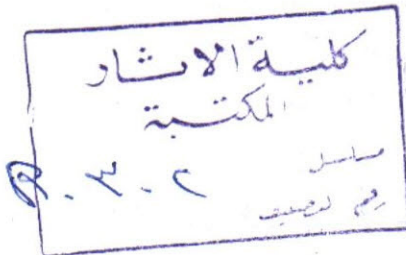 كلية الاثار
المكتبة
مسلسل
رقم تصنيف